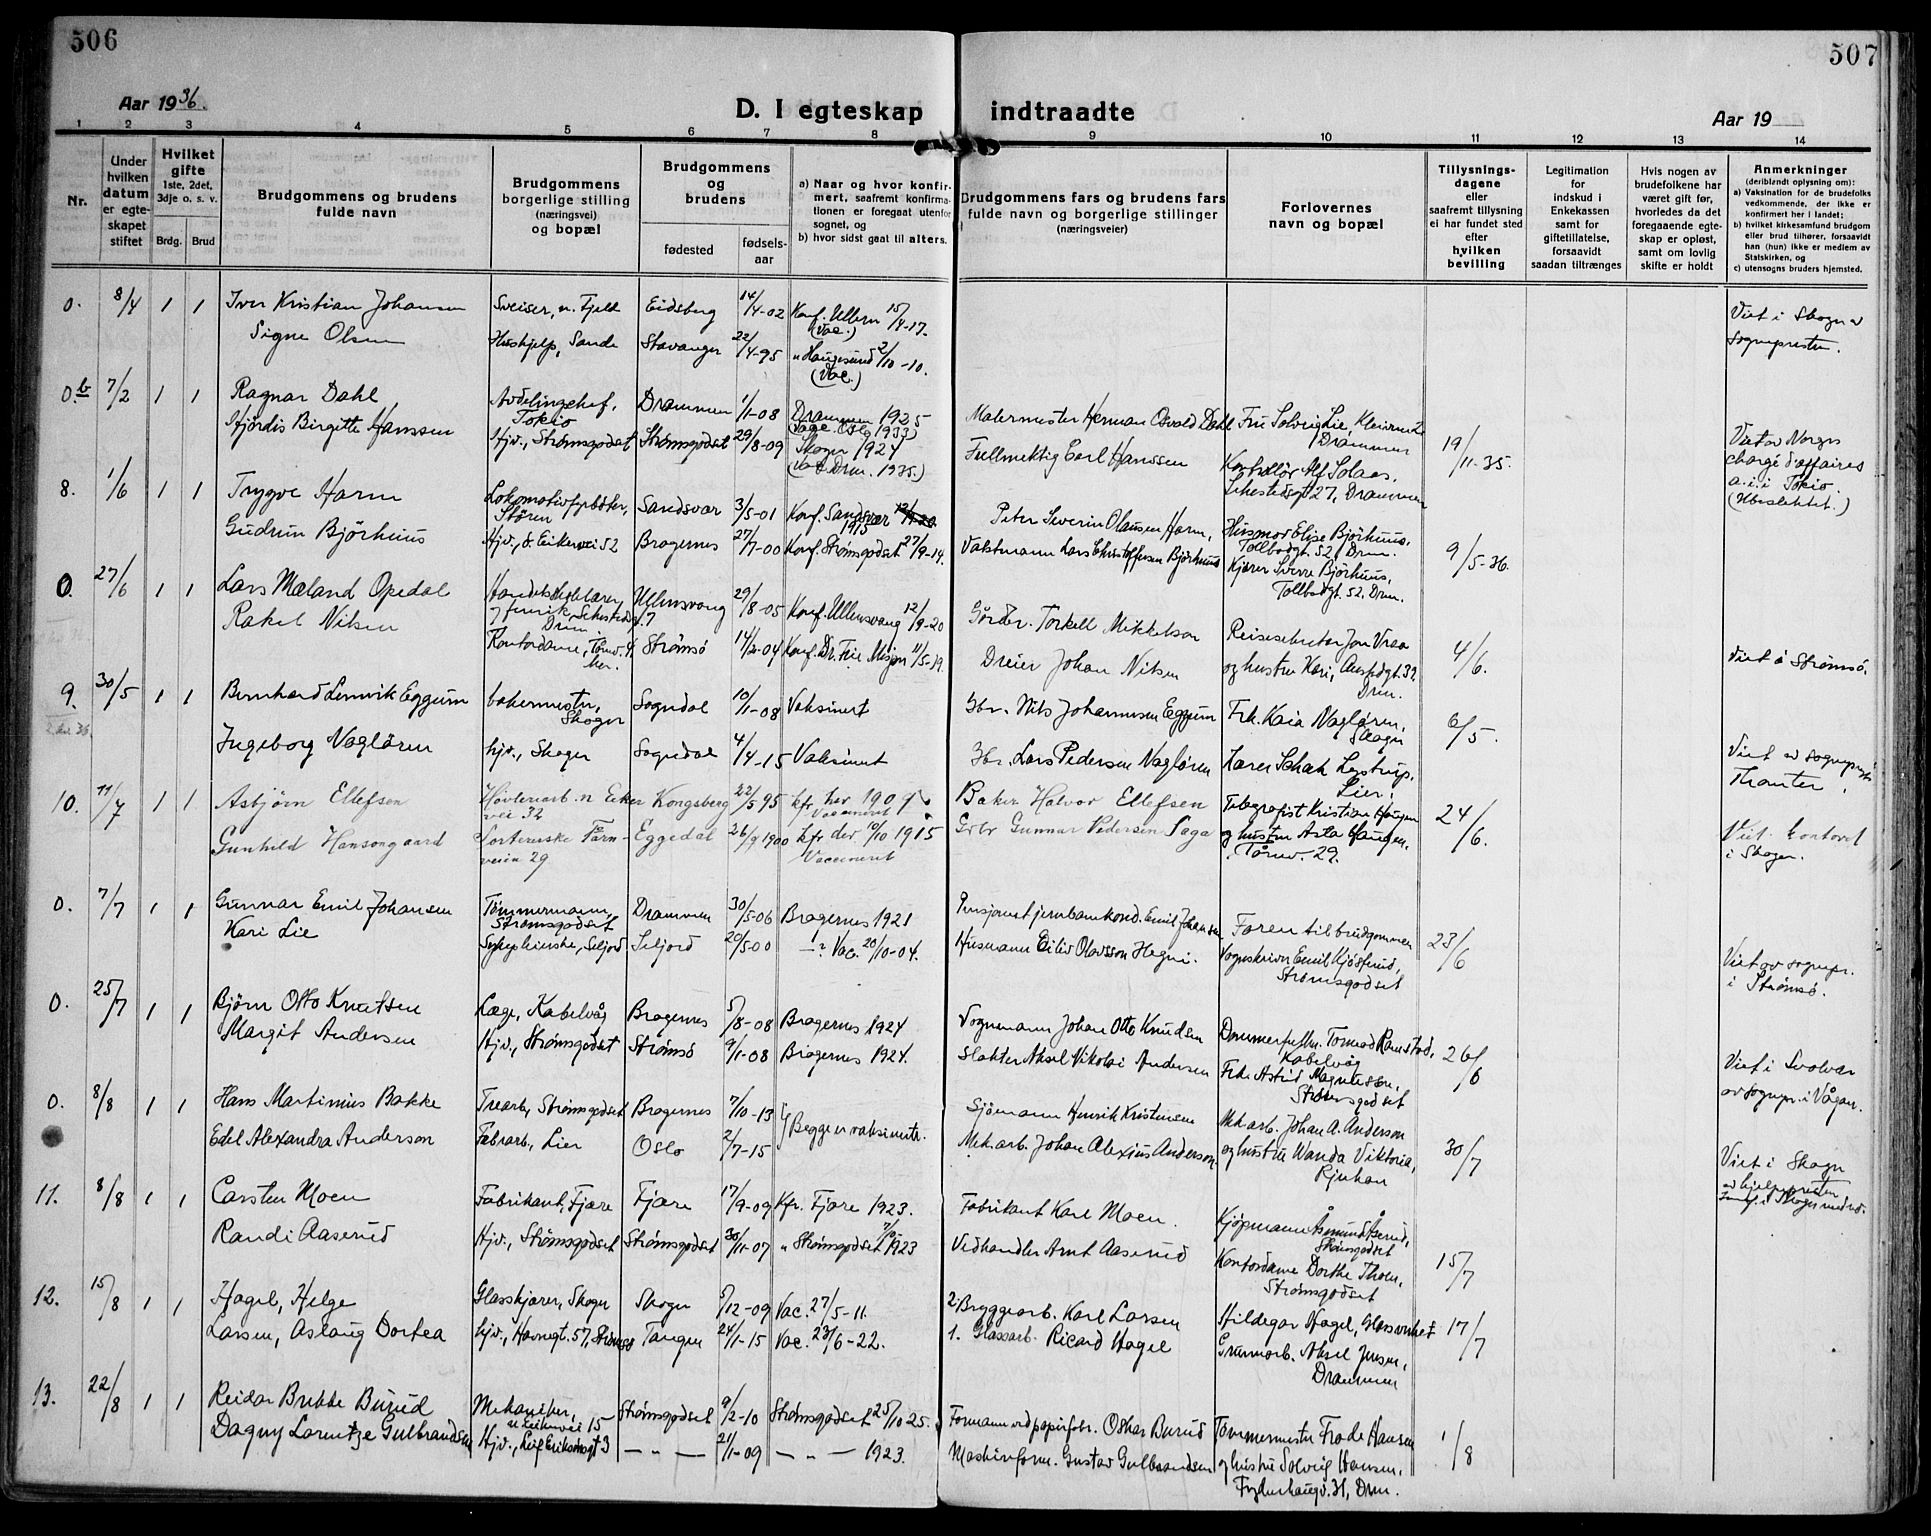 506
507
Aar 1936.
D. I egteskap indtraadte
Aar 19
1 2 3 4 5 6 7 8 9 10 11 12 13 14
Nr.
Under hvilken datum er egteskapet stiftet
Hvilket gifte 1ste, 2det, 3dje o. s. v.
Brdg. Brud
Brudgommens og brudens fulde navn
Brudgommens borgerlige stilling (næringsvei) og bopæl
Brudgommens og brudens
fødested
fødselsaar
a) Naar og hvor konfirmert, saafremt konfirmationen er foregaat utenfor sognet, og
b) hvor sidst gaat til alters.
Brudgommens fars og brudens fars fulde navn og borgerlige stillinger (næringsveier)
Forlovernes navn og bopæl
Tillysningsdagene eller saafremt tillysning ei har fundet sted efter hvilken bevilling
Legitimation for indskud i Enkekassen samt for giftetillatelse, forsaavidt saadan tiltrænges
Hvis nogen av brudefolkene har været gift før, hvorledes da det foregaaende egteskap er opløst, samt om lovlig skifte er holdt
Anmerkninger (deriblandt oplysning om):
a) Vaksination for de brudefolks vedkommende, der ikke er konfirmert her i landet;
b) hvilket kirkesamfund brudgom eller brud tilhører, forsaavidt han (hun) ikke er medlem av Statskirken, og
c) utensogns bruders hjemsted.
0. 8/4 1 1 Iver Kristian Johansen Sveiser, n. Fjell Eidsberg 14/4-02 Konf. Ullern 15/4-17. (Vac.) Viet i Skoger av
Signe Olsen Hushjelp, Sande Stavanger 22/4-95 " Haugesund 2/10-10. (Vac.) sognepresten.
0.b 7/2 1 1 Ragnar Dahl Avdelingschef, Tokio Drammen 1/1-08 Drammen 1925 (Vac. Oslo 1933) Malermester Herman Osvald Dahl Fru Solveig Lie, Drammen 19/11-35. Viet av Norges
Hjördis Birgitte Hanssen Hjv., Strömsgodset Strömsgodset 29/8-09 Skoger 1924 (Vac. Drm. 1935.) Fullmektig Carl Hanssen Kontrollör Alf Solaas, Sehestedsgt 27, Drammen chargé d'affaires a. i. i Tokio.
8. 1/6 1 1 Trygve Harm Lokomotivfyrböter, Stören Sandsvær 3/5-01 Konf. Sandsvær 1915 Peter Severin Olausen Harm, Husmor Elise Bjørhuus, Tollbodgt. 52, Drm. 9/5-36.
Gudrun Bjørhuus Hjv., ö. Eikervei 52 Bragernes 27/7-00 Konf. Strömsgodset 27/9-14. Vaktmann Lars Christoffersen Bjørhuus Kjører Sverre Bjørhuus, Tollbodgt. 52, Drm.
0. 27/6 1 1 Lars Mæland Opedal Ullensvang 29/8-05 Konf. Ullensvang 12/9-20 Gårdbr. Torkell Mikkelson Reisesekretær Jon Vraa 4/6. Viet i Strömsö.
Rakel Nilsen Kontordame, Strömsö 14/2-04 Konf. Dr. Frie Misjon 11/5-19. Dreier Johan Nilsen og hustru Kari, Drm.
9. 30/5 1 1 Bernhard Lemvik Eggum bakermester, Skoger Sogndal 10/1-08 Vaksinert Gbr. Nils Johannesen Eggum Frk. Kaia Nagløren, Skoger 6/5.
Ingeborg Nagløren hjv., Skoger Sogndal 4/4-15 Vaksinert Gbr. Lars Pedersen Nagløren Karen Schak Lystrup, Lier. Viet av sogneprest Thrauter.
10. 11/7 1 1 Asbjørn Ellefsen Høvleriarb. n Eikervei 32 Kongsberg 22/5 95 kfr her 1909 Vaccineret Baker Halvor Ellefsen Telegrafist Kristian Haugen 24/6.
Gunhild Hansongaard Sortererske Tårnveien 29 Eggedal 26/9 1900 kfr der 10/10 1915 Vaccineret Grbr Gunnar Pedersen Saga og hustru Asta Haugen. Tårnv. 29. Viet. kontoret i Skoger.
0. 7/7 1 1 Gunnar Emil Johansen Tömmermann, Strömsgodset Drammen 30/5-06 Bragernes 1921 Pensjonert jernbanekond. Emil Johansen Faren til brudgommen 23/6
Kari Lie Sykepleierske, Seljord Seljord 20/5 00 –"– Vac. 20/10-04. Husmann Eiliv Olavsson Hegni. Vognskriver Emil Kjøsterud, Strömsgodset Viet av sognepr. i Strömsö.
0. 25/7 1 1 Bjørn Otto Knutsen Læge, Kabelvåg Bragernes 5/8-08 Bragernes 1924 Vognmann Johan Otto Knudsen Dommerfullm. Tormod Ramstad, Kabelvåg 26/6
Margit Andersen Hjv., Strömsgodset Strömsö 9/1-08 Bragernes 1924. Slakter Aksel Nikolai Andersen Frk. Astrid Magnussen, Strömsgodset Viet i Svolvær av sognepr. i Vågan.
0. 8/8 1 1 Hans Martinius Bakke Trearb., Strömsgodset Bragernes 7/10-13 Begge er vaksinerte. Sjömann Henrik Kristensen Mek. arb. Johan A. Anderson 30/7
Edel Alexandra Anderson Fabrarb., Lier Oslo 2/7-15 Mek. arb. Johan Alexius Anderson og hustru Wanda Viktoria, Rjukan Viet i Skoger av hjelpepresten
11. 8/8 1 1 Carsten Moen Fabrikant, Fjære Fjære 17/9-09 Kfr. Fjære 1923. Fabrikant Karl Moen. Kjöpmann Åsmund Åserud, Strömsgodset 15/7
Randi Aaserud Hjv., Strömsgodset Strömsgodset 30/11-07 " Strömsgodset 7/10 1923 Vedhandler Arnt Aaserud Kontordame Dorthe Thoen, Strömsgodset
12. 15/8 1 1 Hagel, Helge Glasskjærer, Skoger Skoger 5/12-09 Vac. 27/5-11. 2 Bryggearb. Karl Larsen Hildegar Hagel, Glassverket 17/7
Larsen, Aslaug Dortea hjv., Havnegt. 57, Strömsö Tangen 24/1-15 Vac. 23/6-22. 1. Glassarb. Ricard Hagel Grunnarb. Aksel Jensen, Drammen
13. 22/8 1 1 Reidar Brekke Burud Mekaniker, n. Eikervei 15 Strömsgodset 9/2-10 Strömsgodset 25/10 25. Formann ved papirfabr. Oskar Burud Tömmermester Frode Hansen 1/8
Dagny Lorentze Gulbrandsen Hjv., Leif Eriksönsgt 3 — " — 21/1-09 — " — 1923. Maskinform. Gustav Gulbrandsen og hustru Solveig Hansen, Fjyderhaugv. 31, Drm.